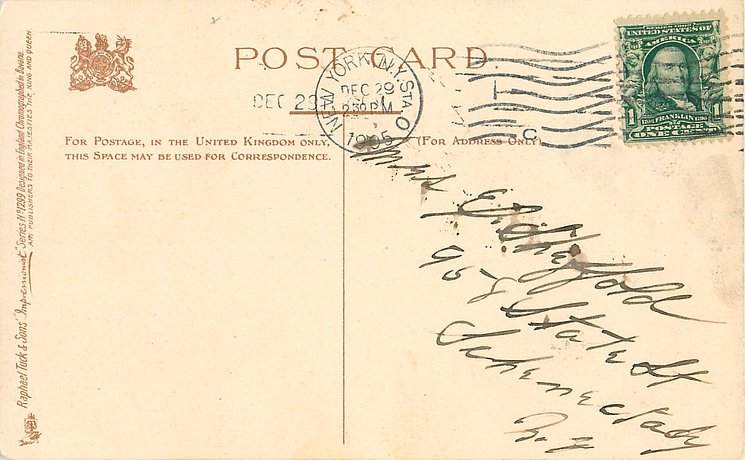 POST CARD.
NEW YORK, N.Y. STA. O
DEC 29
2 30 PM
1905
DEC 29
C
UNITED STATES OF AMERICA
1 1
1706 FRANKLIN 1790
POSTAGE
ONE CENT
FOR POSTAGE, IN THE UNITED KINGDOM ONLY,
THIS SPACE MAY BE USED FOR CORRESPONDENCE.
(FOR ADDRESS ONLY)
Mrs E.
958 State St
Schenectady
N.Y
Raphael Tuck & Sons' "Impressionist" Series No 1299 Designed in England Chromographed in Bavaria
ART PUBLISHERS TO THEIR MAJESTIES THE KING AND QUEEN.